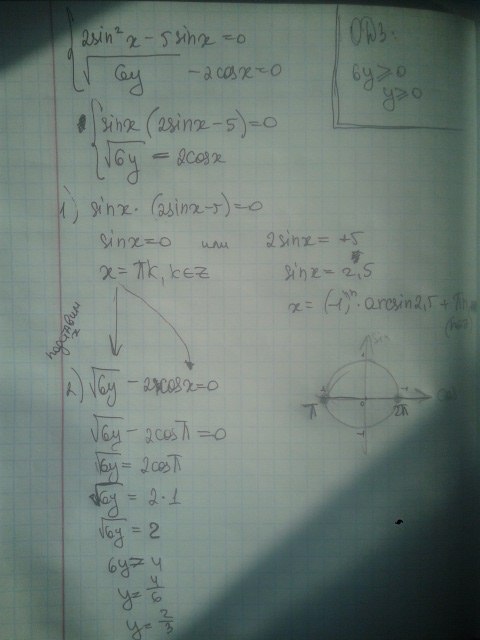 2sin²x − 5sinx = 0
√6y − 2cosx = 0
ОДЗ:
6y ⩾ 0
y ⩾ 0
sinx (2sinx − 5) = 0
√6y = 2cosx
1) sinx · (2sinx − 5) = 0
sinx = 0 или 2sinx = +5
x = πk, k∈Z sinx = 2,5
x = (−1)ⁿ · arcsin2,5 + πn
подставим x
2) √6y − 2cosx = 0
√6y − 2cosπ = 0
√6y = 2cosπ
√6y = 2·1
√6y = 2
6y = 4
y = 4/6
y = 2/3
π 0 2π